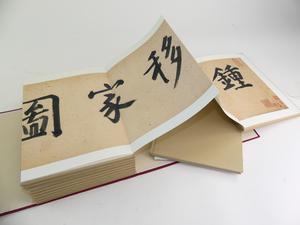 鍾
移家圖